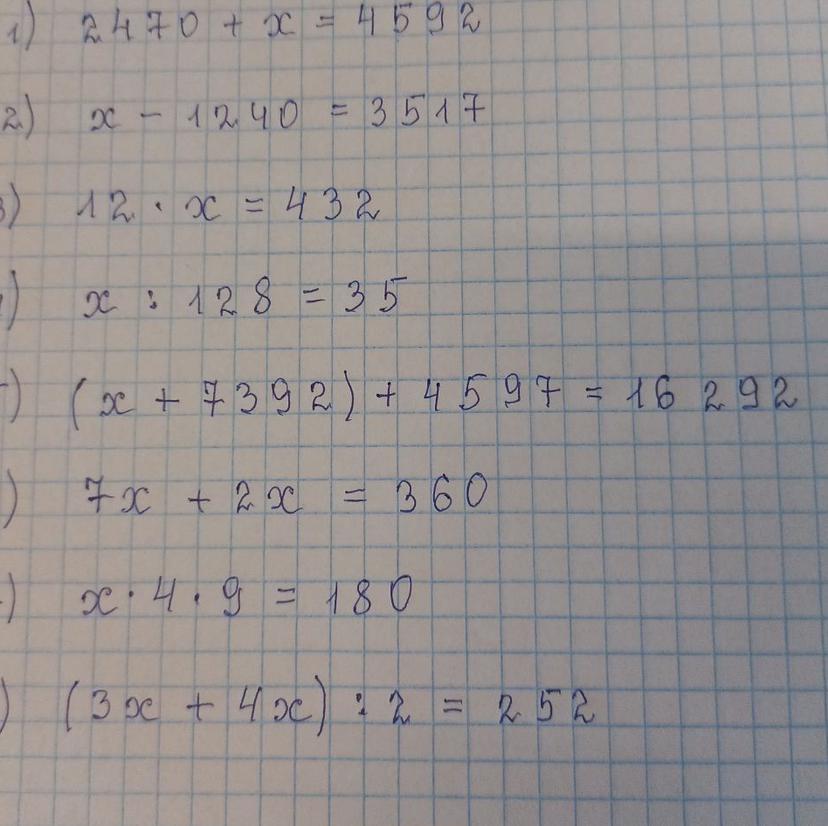 1) 2470 + x = 4592
2) x - 1240 = 3517
3) 12 · x = 432
) x : 128 = 35
) (x + 7392) + 4597 = 16 292
) 7x + 2x = 360
) x · 4 · 9 = 180
) (3x + 4x) : 2 = 252